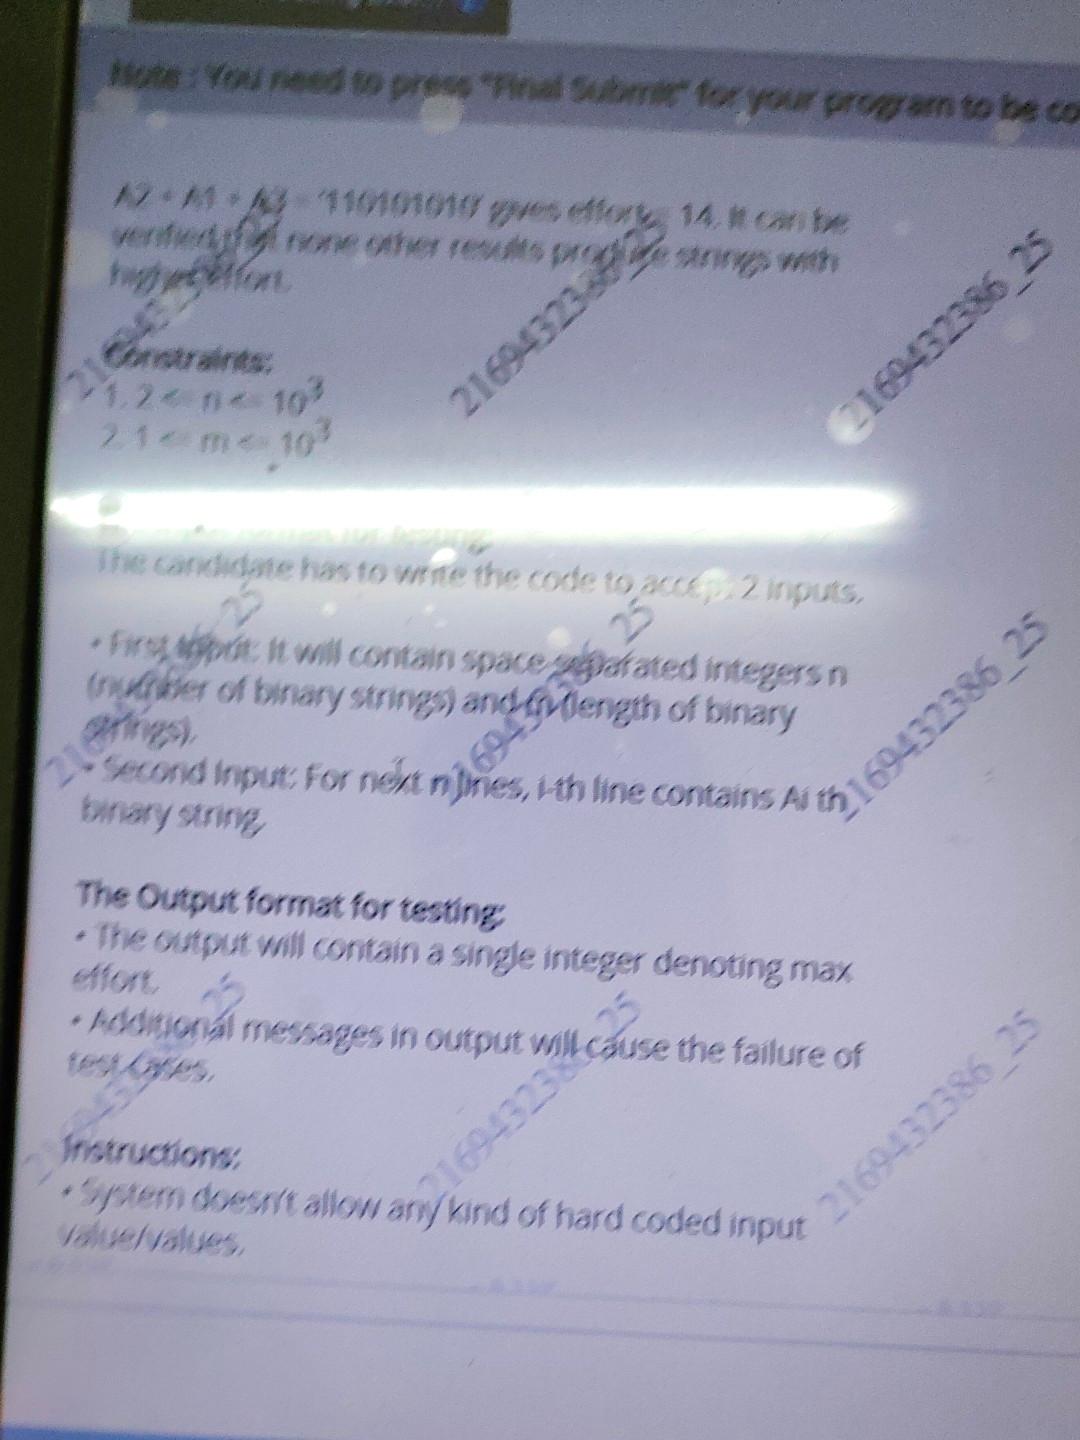 Note : You need to press "Final Submit" for your program to be co
A2 + A1 + A3 = '110101010' gives effort = 14. It can be
verified that none other results produce strings with
higher effort.
Constraints:
1. 2 <= n <= 10^3
2. 1 <= m <= 10^3
format for testing:
The candidate has to write the code to accept 2 inputs.
• First Input: It will contain space-separated integers n
(number of binary strings) and m (length of binary
strings).
• Second Input: For next n lines, i-th line contains Ai th
binary string.
The Output format for testing:
• The output will contain a single integer denoting max
effort.
• Additional messages in output will cause the failure of
test cases.
Instructions:
• System doesn't allow any kind of hard coded input
value/values.
2169432386_25
2169432386_25
2169432386_25
2169432386_25
2169432386_25